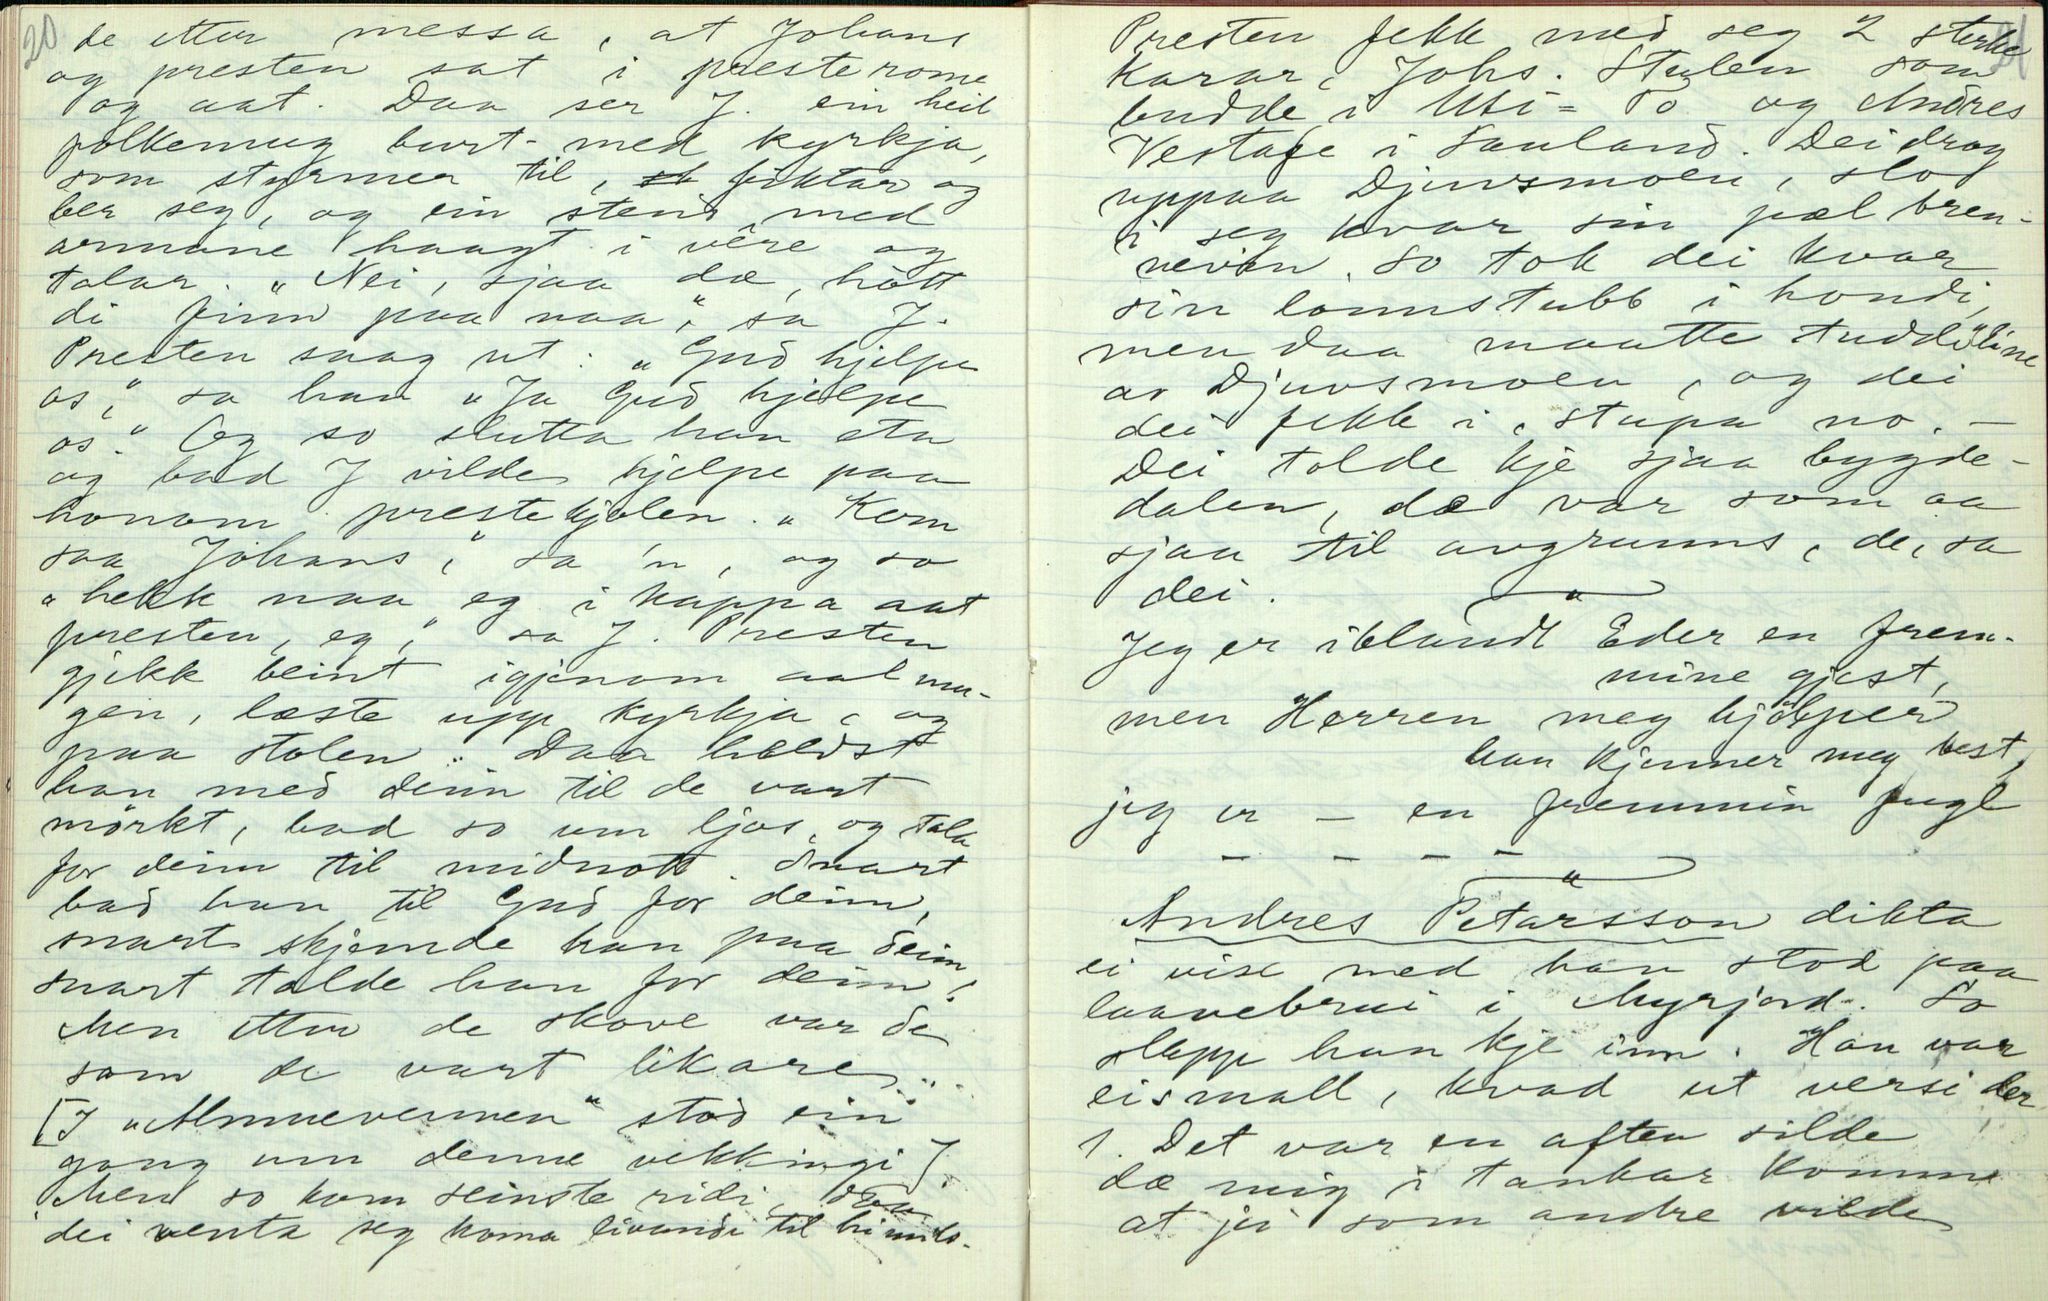 20
de etter messa, at Johans
og presten sat i presterome
og aat. Daa ser J. ein heil
folkemug burt-med kyrkja,
som styrmer til, fiktar og
ber seg, og ein stend med
armane haagt i vêre og
talar. "Nei, sjaa dæ, hött
di finn paa naa," sa J.
Presten saag ut. "Gud hjelpe
os," sa han "Ja Gud hjelpe
os." Og so slutta han eta
og bad J vilde hjelpe paa
honom prestekjolen. "Kom
saa Johans," sa 'n, og so
"hekk naa eg i kappa aat
presten, eg," sa J. Presten
gjekk beint igjenom aalmu-
gen, læste upp kyrkja, og
paa stolen. Daa heldst
han med deim til de vart
mörkt, bad so um ljos, og tala
for deim til midnott. Snart
bad han til Gud for deim,
snart skjemde han paa deim,
snart talde han for deim!
Men etter de skove var de
som de vart likare...
[I "Almuevennen" stod ein
gong um denne vekkingi]
Men so kom seinste ridi, daa
dei venta seg koma livande til himils.
21
Presten fekk med seg 2 sterke
karar, Johs. Stulen som
budde i Uti-Bö og Andres
Vestage i Sauland. Dei drog
uppaa Djuvsmoen, slo
i seg kvar sin pæl bren-
nevin. So tok dei kvar
sin lonnstubb i hondi,
men daa maatte tuddöline
av Djuvsmoen, og dei
dei fekk i, stupa no. —
Dei tolde kje sjaa bygde-
dalen, dæ var som aa
sjaa til avgrunns, de, sa
dei.
"
Jeg er iblandt Eder en frem-
mine gjest,
men Herren meg hjelper
han kjenner meg best,
jeg er — en fremmin fugl
— — — —
"
Andres Petarsson dikta
ei vise med han stod paa
laavebrui i Myrjord. So
slapp han kje inn. Han var
eismall, kvad ut versi der
1. Det var en aften silde
dæ mig i tankar komme
at jei som andre vilde